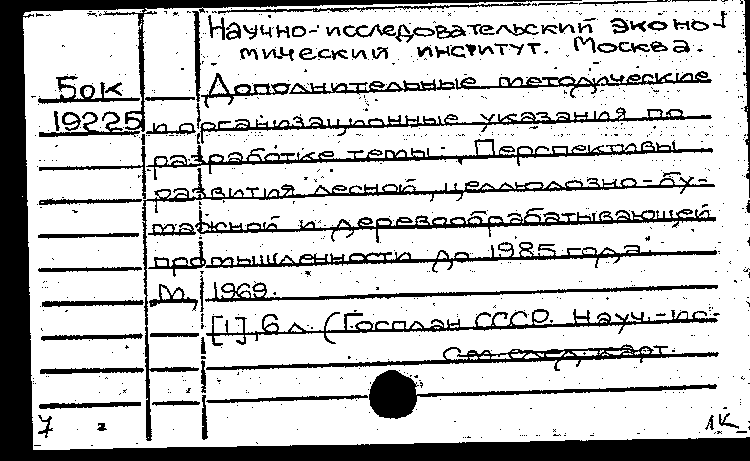 Научно-исследовательский эконо-
мический институт. Москва.
Бок Дополнительные методические
19225 и организационные указания по
разработке темы: „Перспективы
развития лесной, целлюлозно-бу-
мажной и деревообрабатывающей
промышленности до 1985 года.
М., 1969.
[1], 6 л. (Госплан СССР. Науч.-
См. след. карт.
7 2 1К